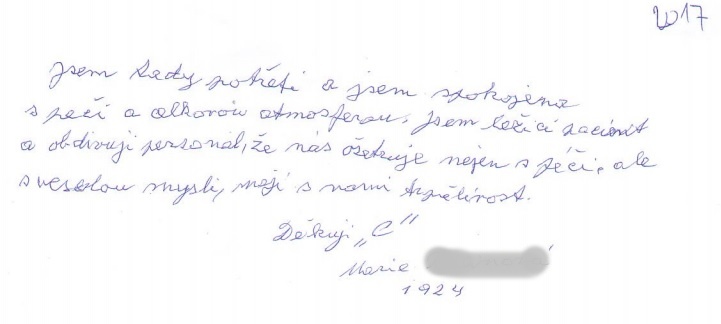 2017
Jsem tady potřetí a jsem spokojena
s péčí a celkovou atmosferou. Jsem ležící pacient
a obdivuji personál, že nás ošetřuje nejen s péčí, ale
s veselou myslí, mají s námi trpělivost.
Děkuji „C"
Marie
1924